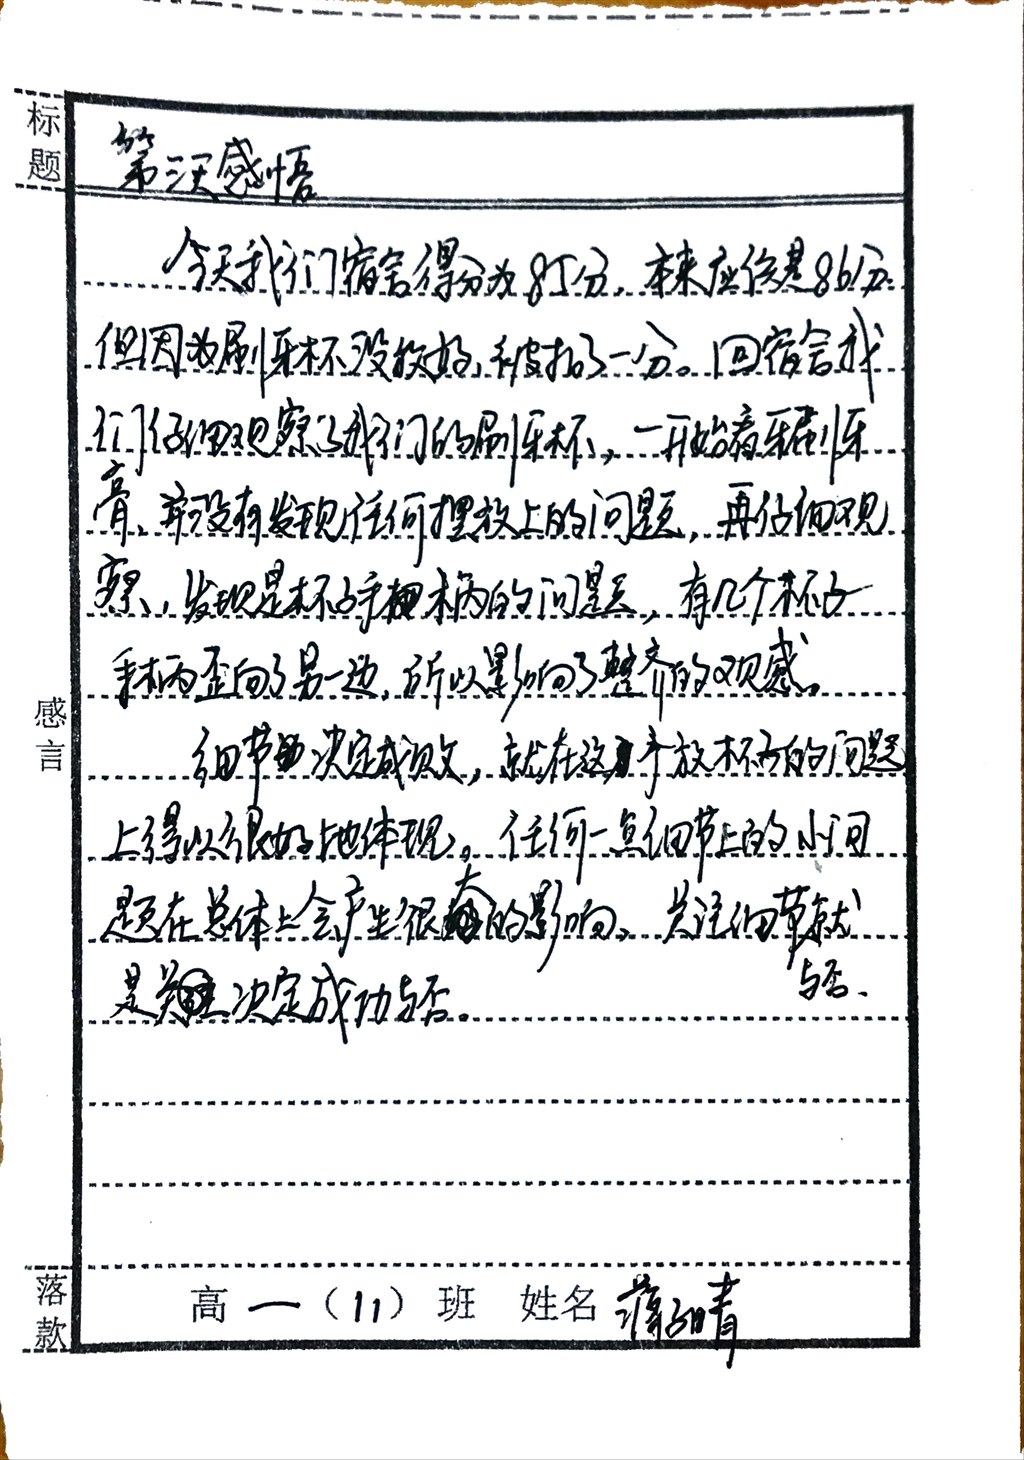 标题
第三天感悟
今天我们宿舍得分为85分，本来应该是86分，
但因为刷牙杯没放好，被扣了一分。回宿舍我
们仔细观察了我们的刷牙杯，一开始看牙刷牙
膏，并没有发现任何摆放上的问题，再仔细观
察，发现是杯子手柄的问题，有几个杯子
手柄歪向了另一边，所以影响了整齐的观感。
感言
细节决定成败，就在这个放杯子的问题
上得以很好地体现。任何一点细节上的小问
题在总体上会产生很大的影响。关注细节就
与否.
是决定成功与否。
落款
高一（11）班 姓名 蒋子晴